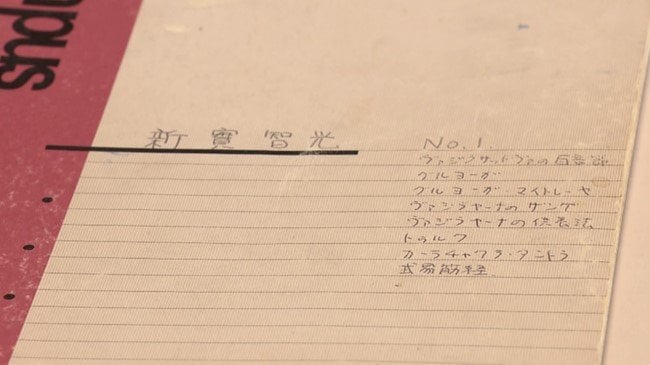 sndu
新實智光
No.1.
ヴァジラサットヴァの百
グルヨーガ
グルヨーガ・マイトレーヤ
ヴァジラヤーナのザンゲ
ヴァジラヤーナの供養法
トゥルク
カーラチャクラ・タントラ
式易筋経